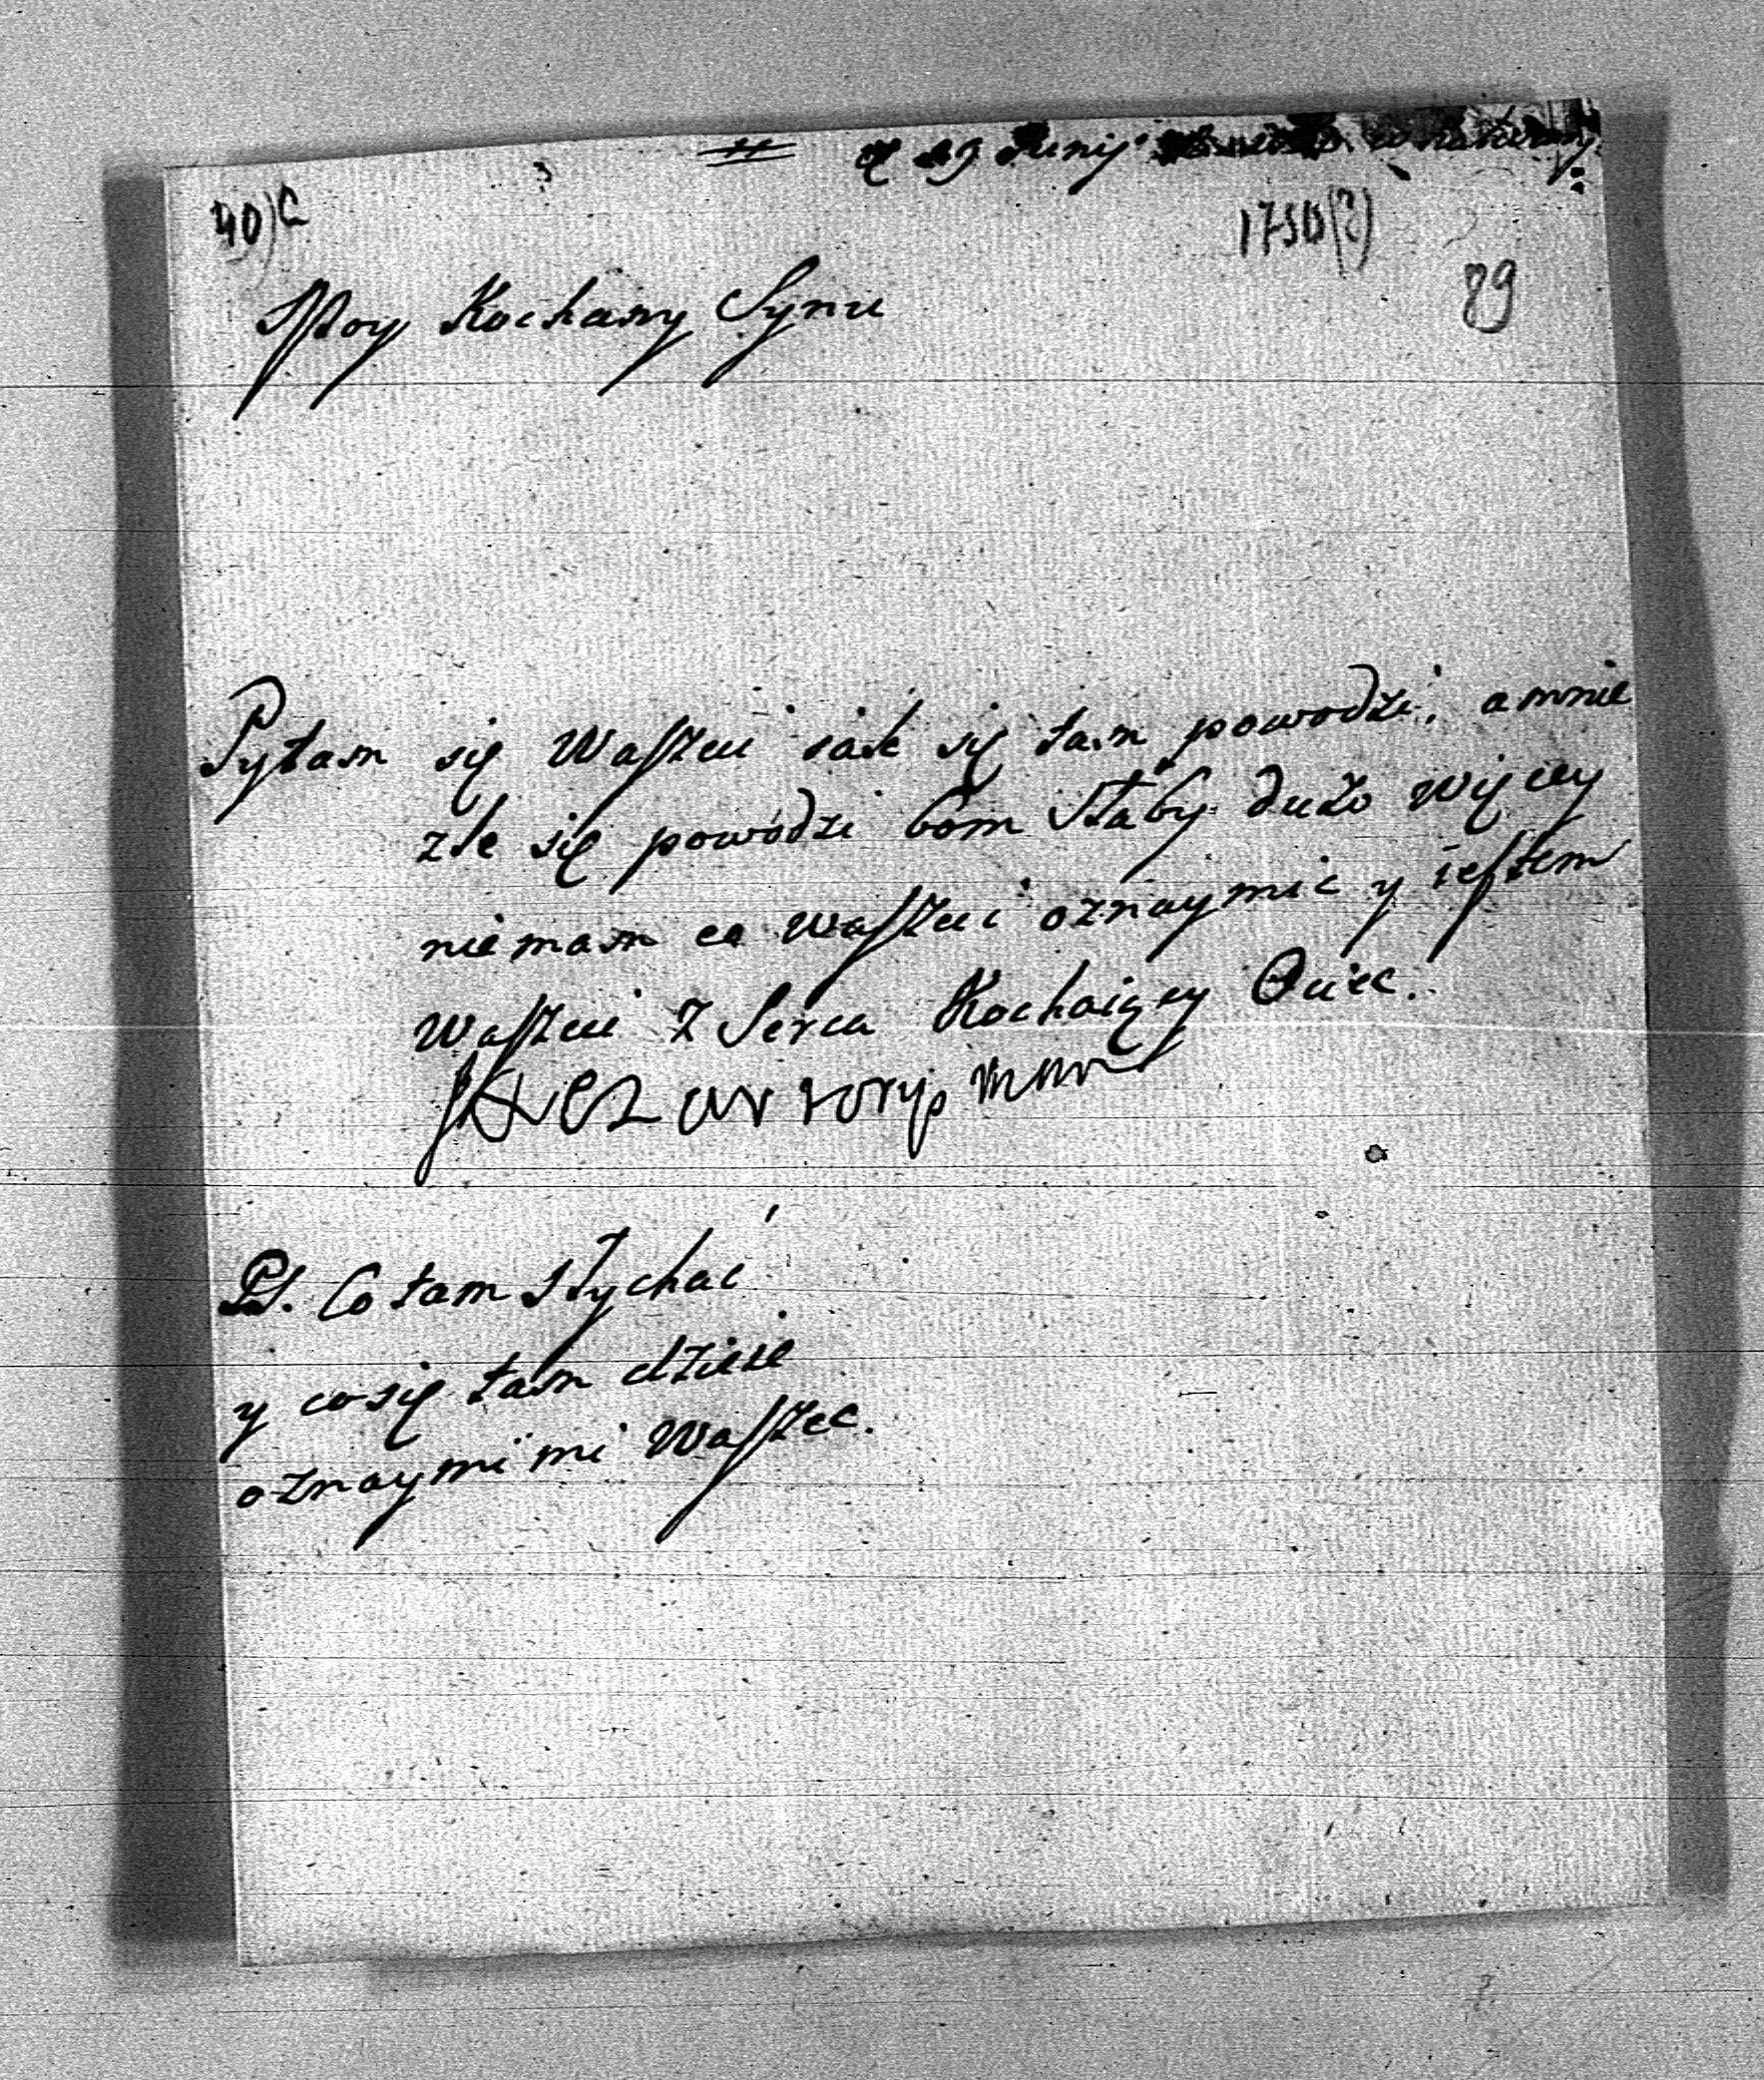 29 Junij
40)c
1750(?)
89
Moy Kochany Synu
Pytam się Waszeci iak się tam powodzi, a mnie
zle się powodzi bom Słaby dużo więcey
niemam co waszeci oznaymic y iestem
Waszeci z Serca Kochaiący Ociec.
PS. Co tam słychać
y co się tam dzieie
oznaymi mi Waszec.